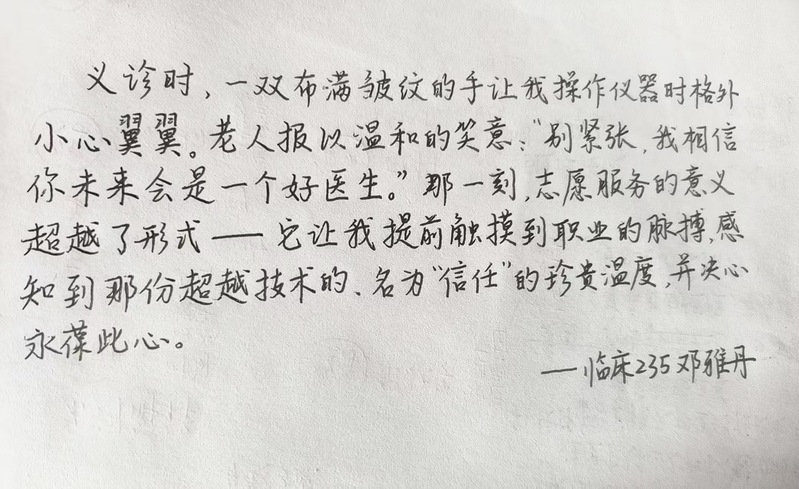 义诊时，一双布满皱纹的手让我操作仪器时格外
小心翼翼。老人报以温和的笑意：“别紧张，我相信
你未来会是一个好医生。”那一刻，志愿服务的意义
超越了形式——它让我提前触摸到职业的脉搏，感
知到那份超越技术的、名为“信任”的珍贵温度，并决心
永葆此心。
——临床235邓雅丹